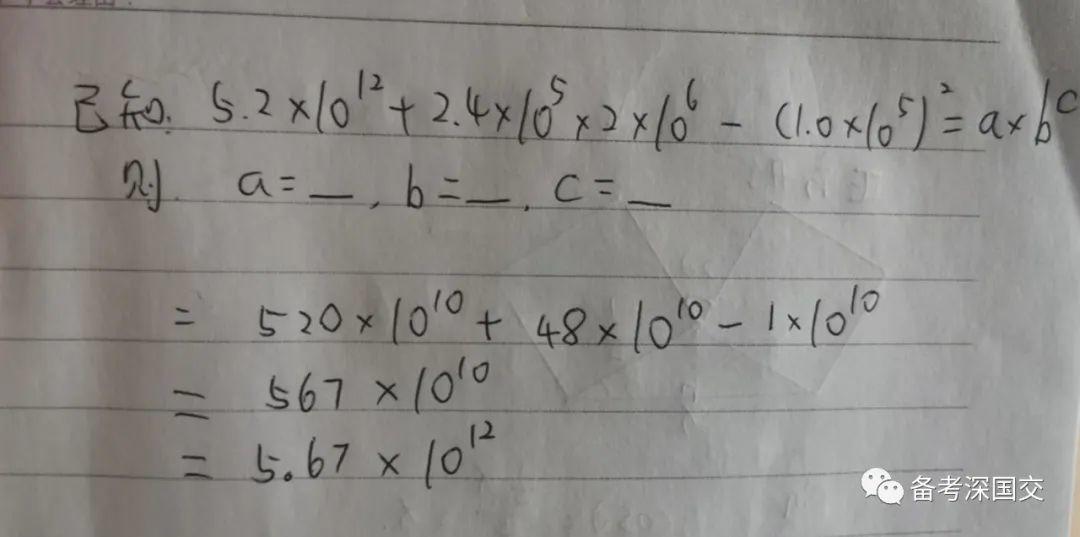 已知: 5.2×10¹²+2.4×10⁵×2×10⁶-(1.0×10⁵)²=a×b^c
则. a=_, b=_, c=_
= 520×10¹⁰+48×10¹⁰-1×10¹⁰
= 567×10¹⁰
= 5.67×10¹²
备考深国交